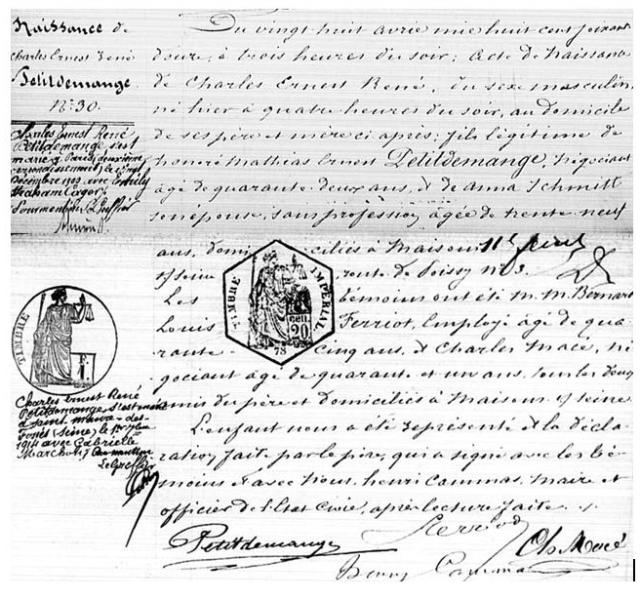 Naissance de
Charles Ernest René
Petitdemange.
N° 30.
Charles Ernest René
Petitdemange s'est
marié à Paris, deuxième
arrondissement, le
décembre 1909, avec Emily
TIMBRE
Charles Ernest René
Petitdemange s'est marié
à Saint Maur-des-
Fossés (Seine), le
1914 avec Gabrielle
Du vingt huit avril mil huit cent soixante
douze, à trois heures du soir; acte de naissance
de Charles Ernest René, du sexe masculin,
né hier à quatre heures du soir, au domicile
de ses père et mère ci après; fils légitime de
honoré Mathias Ernest Petitdemange, négociant
âgé de quarante deux ans, et de anna Schmitt
son épouse, sans profession, âgée de trente neuf
ans, domiciliés à Maisons
s/ Seine route de Poissy n° 3.
TIMBRE IMPERIAL
20
78
Les témoins ont été M. M. Bernard
Louis Ferriot, Employé âgé de qua
rante-cinq ans, et Charles Macé, né
gociant âgé de quarante et un ans, tous les deux
amis du père et domiciliés à Maisons s/ Seine
L'enfant nous a été représenté et la décla
ration faite par le père, qui a signé avec les té
moins et avec Nous, henri Cammas, maire et
officier de l'Etat Civil, après lecture faite.
Ferriot
Petitdemange
Ch. Macé
Henry Cammas